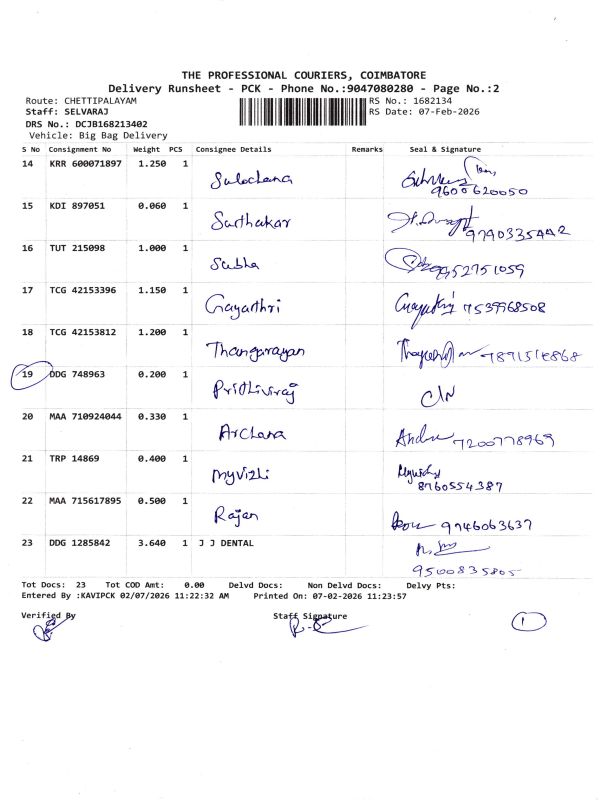 THE PROFESSIONAL COURIERS, COIMBATORE
Delivery Runsheet - PCK - Phone No.:9047080280 - Page No.:2
Route: CHETTIPALAYAM RS No.: 1682134
Staff: SELVARAJ RS Date: 07-Feb-2026
DRS No.: DCJB168213402
Vehicle: Big Bag Delivery
S No Consignment No Weight PCS Consignee Details Remarks Seal & Signature
14 KRR 600071897 1.250 1 Sulochana
9600620050
15 KDI 897051 0.060 1 Sarthakar
9790335442
16 TUT 215098 1.000 1 Subha 9952751059
17 TCG 42153396 1.150 1 Gayarthri 7539968508
18 TCG 42153812 1.200 1 Thangarayan
19 DDG 748963 0.200 1 Prithiviraj
20 MAA 710924044 0.330 1 Archana 7200778969
21 TRP 14869 0.400 1 Myvizli
8760554387
22 MAA 715617895 0.500 1 Rajan 9746063637
23 DDG 1285842 3.640 1 J J DENTAL
9500835805
Tot Docs: 23 Tot COD Amt: 0.00 Delvd Docs: Non Delvd Docs: Delvy Pts:
Entered By :KAVIPCK 02/07/2026 11:22:32 AM Printed On: 07-02-2026 11:23:57
Verified By Staff Signature
1